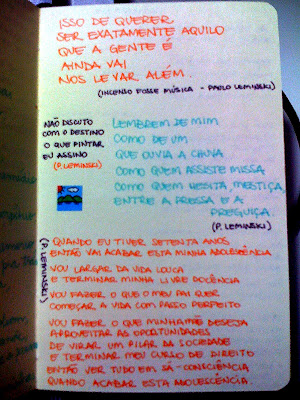 ISSO DE QUERER
SER EXATAMENTE AQUILO
QUE A GENTE É
AINDA VAI
NOS LEVAR ALÉM.
(INCENSO FOSSE MÚSICA - PAULO LEMINSKI)
NÃO DISCUTO
COM O DESTINO
O QUE PINTAR
EU ASSINO
(P. LEMINSKI)
LEMBREM DE MIM
COMO DE UM
QUE OUVIA A CHUVA
COMO QUEM ASSISTE MISSA
COMO QUEM HESITA, MESTIÇA,
ENTRE A PRESSA E A
PREGUIÇA.
(P. LEMINSKI)
(P. LEMINSKI)
QUANDO EU TIVER SETENTA ANOS
ENTÃO VAI ACABAR ESTA MINHA ADOLESCÊNCIA
VOU LARGAR DA VIDA LOUCA
E TERMINAR MINHA LIVRE DOCÊNCIA
VOU FAZER O QUE O MEU PAI QUER
COMEÇAR A VIDA COM PASSO PERFEITO
VOU FAZER O QUE MINHA MÃE DESEJA
APROVEITAR AS OPORTUNIDADES
DE VIRAR UM PILAR DA SOCIEDADE
E TERMINAR MEU CURSO DE DIREITO
ENTÃO VER TUDO EM SÃ-CONSCIÊNCIA
QUANDO ACABAR ESTA ADOLESCÊNCIA.